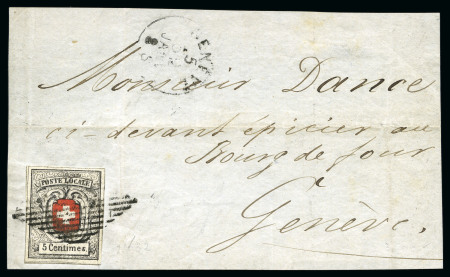 GENÈVE
Monsieur Dance
ci-devant épicier au
Bourg de four
Genève.
POSTE LOCALE
5 Centimes.